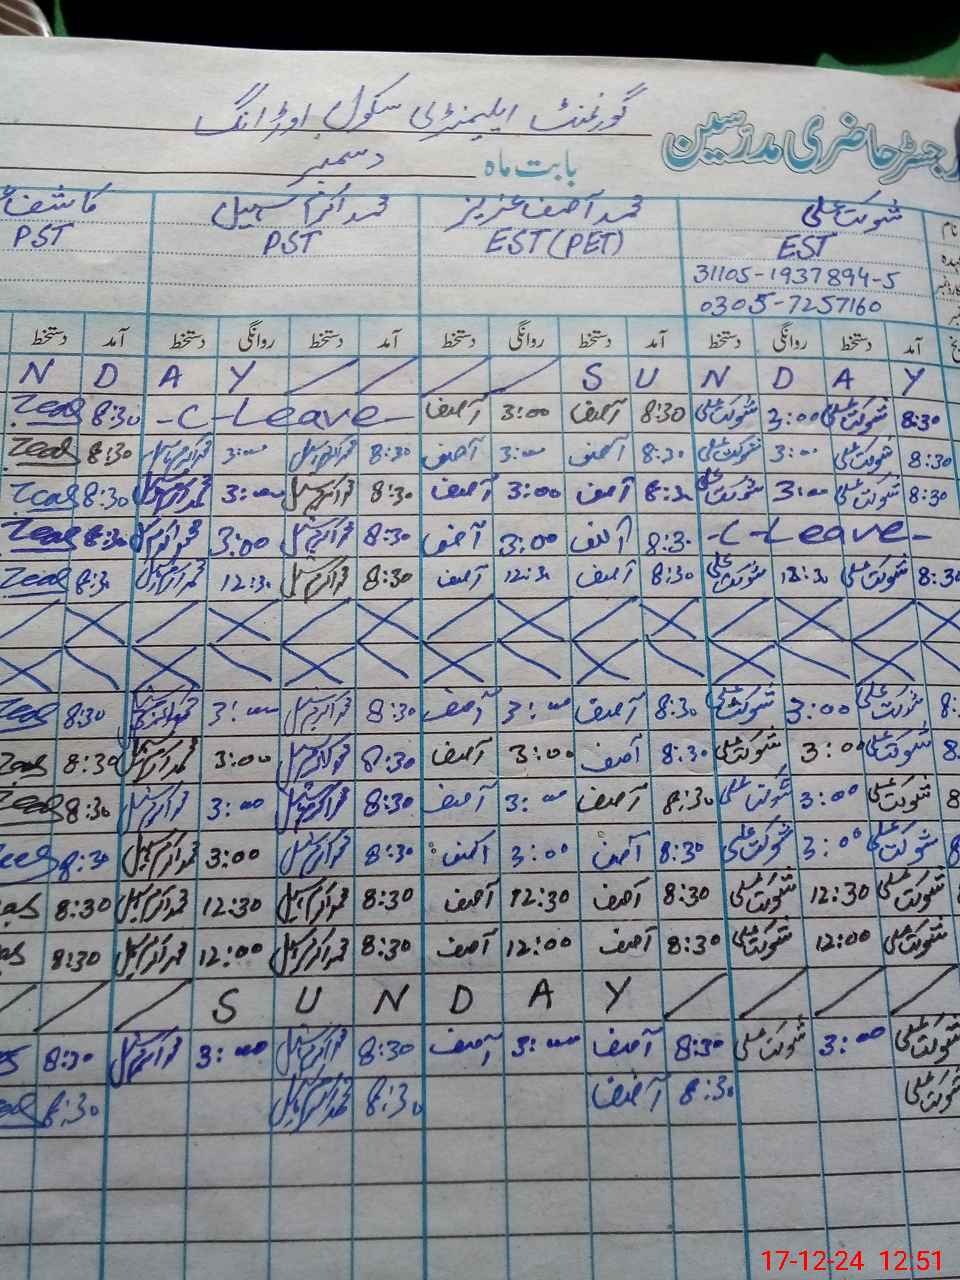 رجسٹر حاضری مدرسین گورنمنٹ ایلیمنٹری سکول اوڑانگ
بابت ماہ دسمبر
نام شوکت علی محمد آصف عزیز محمد اکرم سہیل کاشف
EST EST(PET) PST PST
31105-1937894-5
0305-7257160
آمد دستخط روانگی دستخط آمد دستخط روانگی دستخط آمد دستخط روانگی دستخط آمد دستخط
N D A Y S U N D A Y
8:30 شوکت علی 3:00 شوکت علی 8:30 آصف 3:00 آصف -C-Leave- 8:30 Zeas
8:30 شوکت علی 3:00 شوکت علی 8:30 آصف 3:00 آصف 8:30 محمد اکرم سہیل 3:00 محمد اکرم سہیل 8:30 Zeas
8:30 شوکت علی 3:00 شوکت علی 8:30 آصف 3:00 آصف 8:30 محمد اکرم سہیل 3:00 محمد اکرم سہیل 8:30 Zeas
-C-Leave- 8:30 آصف 3:00 آصف 8:30 محمد اکرم سہیل 3:00 محمد اکرم سہیل 8:30 Zeas
8:30 شوکت علی 12:30 شوکت علی 8:30 آصف 12:30 آصف 8:30 محمد اکرم سہیل 12:30 محمد اکرم سہیل 8:30 Zeas
شوکت علی 3:00 شوکت علی 8:30 آصف 3:00 آصف 8:30 محمد اکرم سہیل 3:00 محمد اکرم سہیل 8:30
شوکت علی 3:00 شوکت علی 8:30 آصف 3:00 آصف 8:30 محمد اکرم سہیل 3:00 محمد اکرم سہیل 8:30
شوکت علی 3:00 شوکت علی 8:30 آصف 3:00 آصف 8:30 محمد اکرم سہیل 3:00 محمد اکرم سہیل 8:30
شوکت علی 3:00 شوکت علی 8:30 آصف 3:00 آصف 8:30 محمد اکرم سہیل 3:00 محمد اکرم سہیل 8:30
شوکت علی 12:30 شوکت علی 8:30 آصف 12:30 آصف 8:30 محمد اکرم سہیل 12:30 محمد اکرم سہیل 8:30
شوکت علی 12:00 شوکت علی 8:30 آصف 12:00 آصف 8:30 محمد اکرم سہیل 12:00 محمد اکرم سہیل 8:30
S U N D A Y
شوکت علی 3:00 شوکت علی 8:30 آصف 3:00 آصف 8:30 محمد اکرم سہیل 3:00 محمد اکرم سہیل 8:30
شوکت علی 8:30 آصف 8:30 محمد اکرم سہیل 8:30
17-12-24 12:51